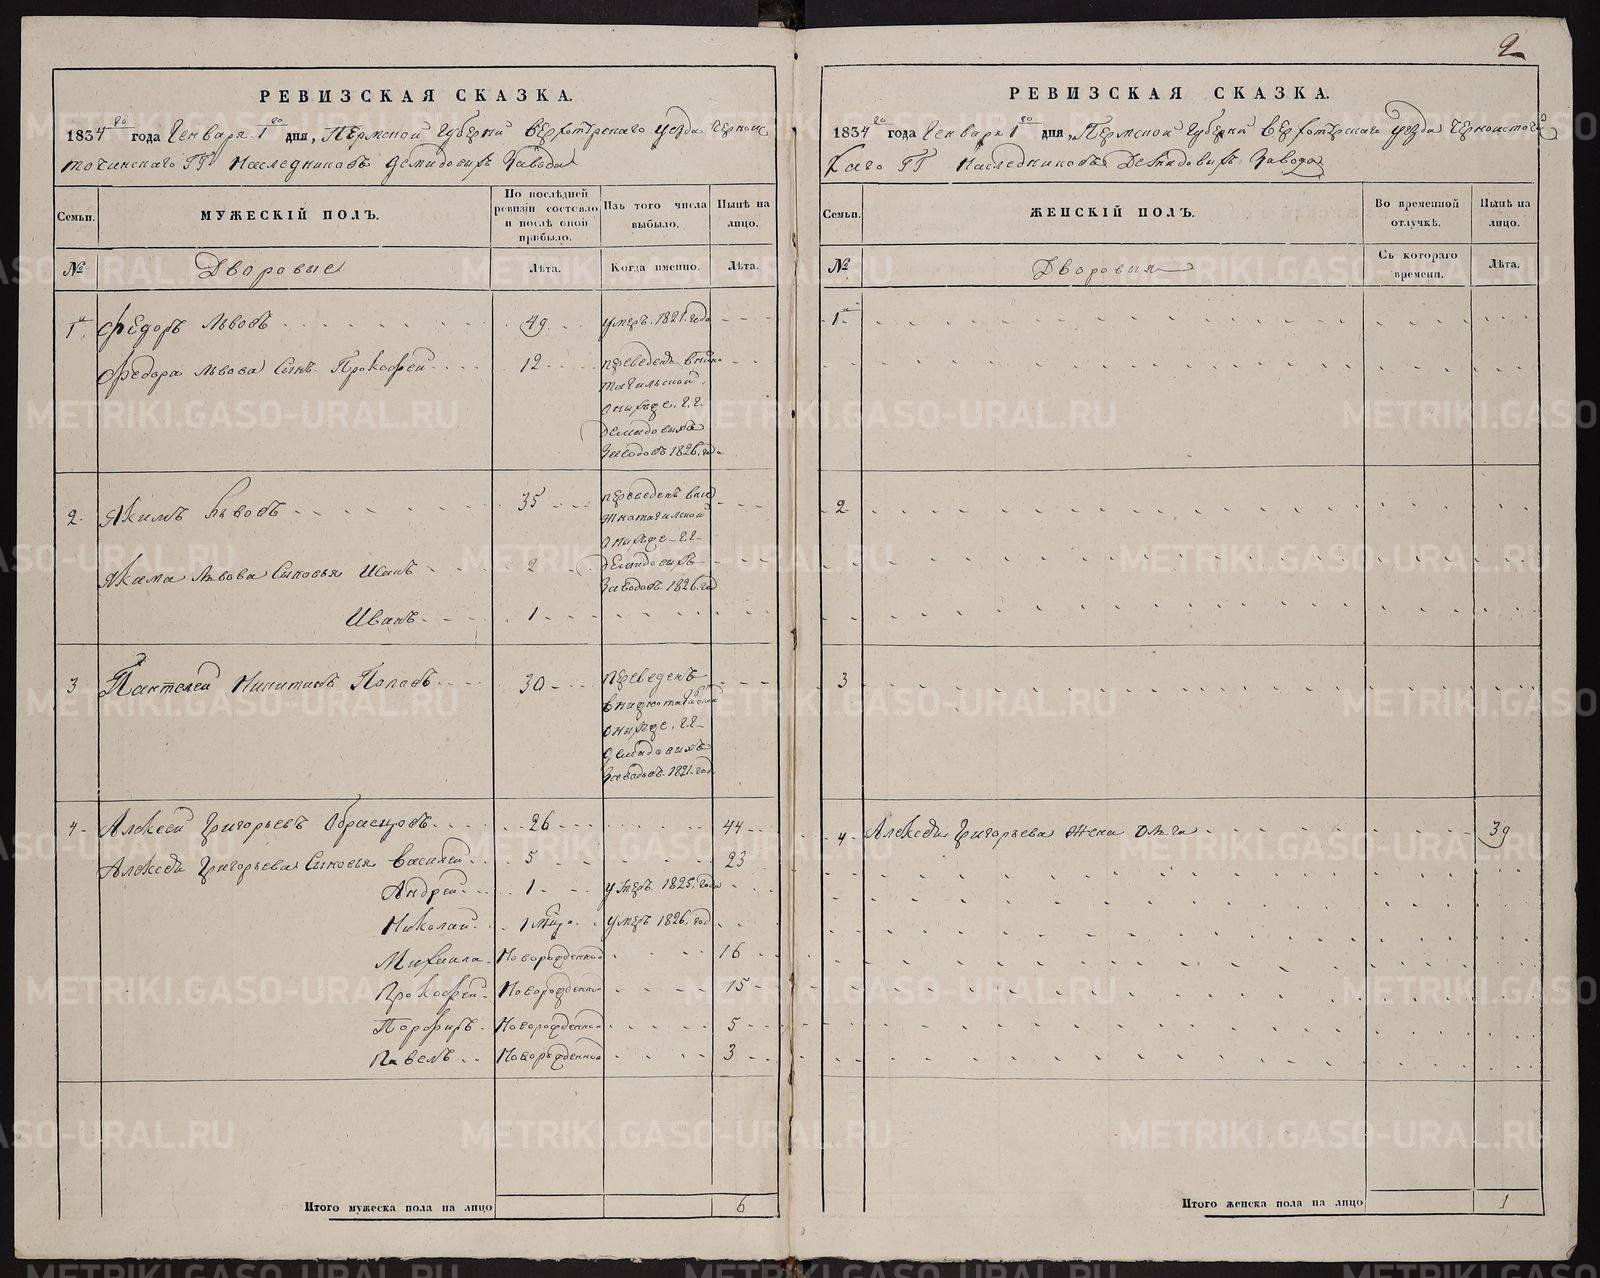 2
РЕВИЗСКАЯ СКАЗКА.
1834 го года Генваря 1 го дня, Пермской Губернии Верхотурскаго уезда Черноис
точинскаго ГГ Наследниковъ Демидовыхъ Завода
Семьи.
МУЖЕСКІЙ ПОЛЪ.
По послѣдней ревизіи состояло и послѣ оной прибыло.
Изъ того числа выбыло.
Нынѣ на лицо.
№
Дворовые
Лѣта.
Когда именно.
Лѣта.
1й Федоръ Львовъ 49 умеръ 1821. года
Федора Львова Сынъ Прокофей 12 переведенъ в нижне
тагильской
онихъже. г.г.
Демидовыхъ
Заводъ 1826. года
2. Якимъ Львовъ 35 переведенъ в ни
жнетагильской
онихъже г.г.
Якима Львова Сыновья Иванъ 2 Демидовыхъ
Заводъ 1826. год
Иванъ 1
3 Пантелей Никитинъ Поповъ 30 переведенъ
в нижнетагильской
онихъже. г.г.
Демидовыхъ
Заводъ 1821. год
4 Алексей Григорьевъ Образцовъ 26 44
Алексея Григорьева Сыновья Василей 5 23
Андрей 1 умеръ 1825. года
Николай 1 мца умеръ 1826. год
Михаила Новорожденной 16
Прокофей Новорожденной 15
Порфиръ Новорожденной 5
Павелъ Новорожденной 3
Итого мужеска пола на лицо 6
РЕВИЗСКАЯ СКАЗКА.
1834 го года Генваря 1 го дня, Пермской Губерни Верхотурскаго уезда Черноисточин
скаго ГГ Наследниковъ Демидовыхъ Завода
Семьи.
ЖЕНСКІЙ ПОЛЪ.
Во временной отлучкѣ.
Нынѣ на лицо.
№
Дворовыя
Съ котораго времени.
Лѣта.
1
2
3
4 Алексея Григорьева жена Ольга 39
Итого женска пола на лицо 1
METRIKI.GASO-URAL.RU